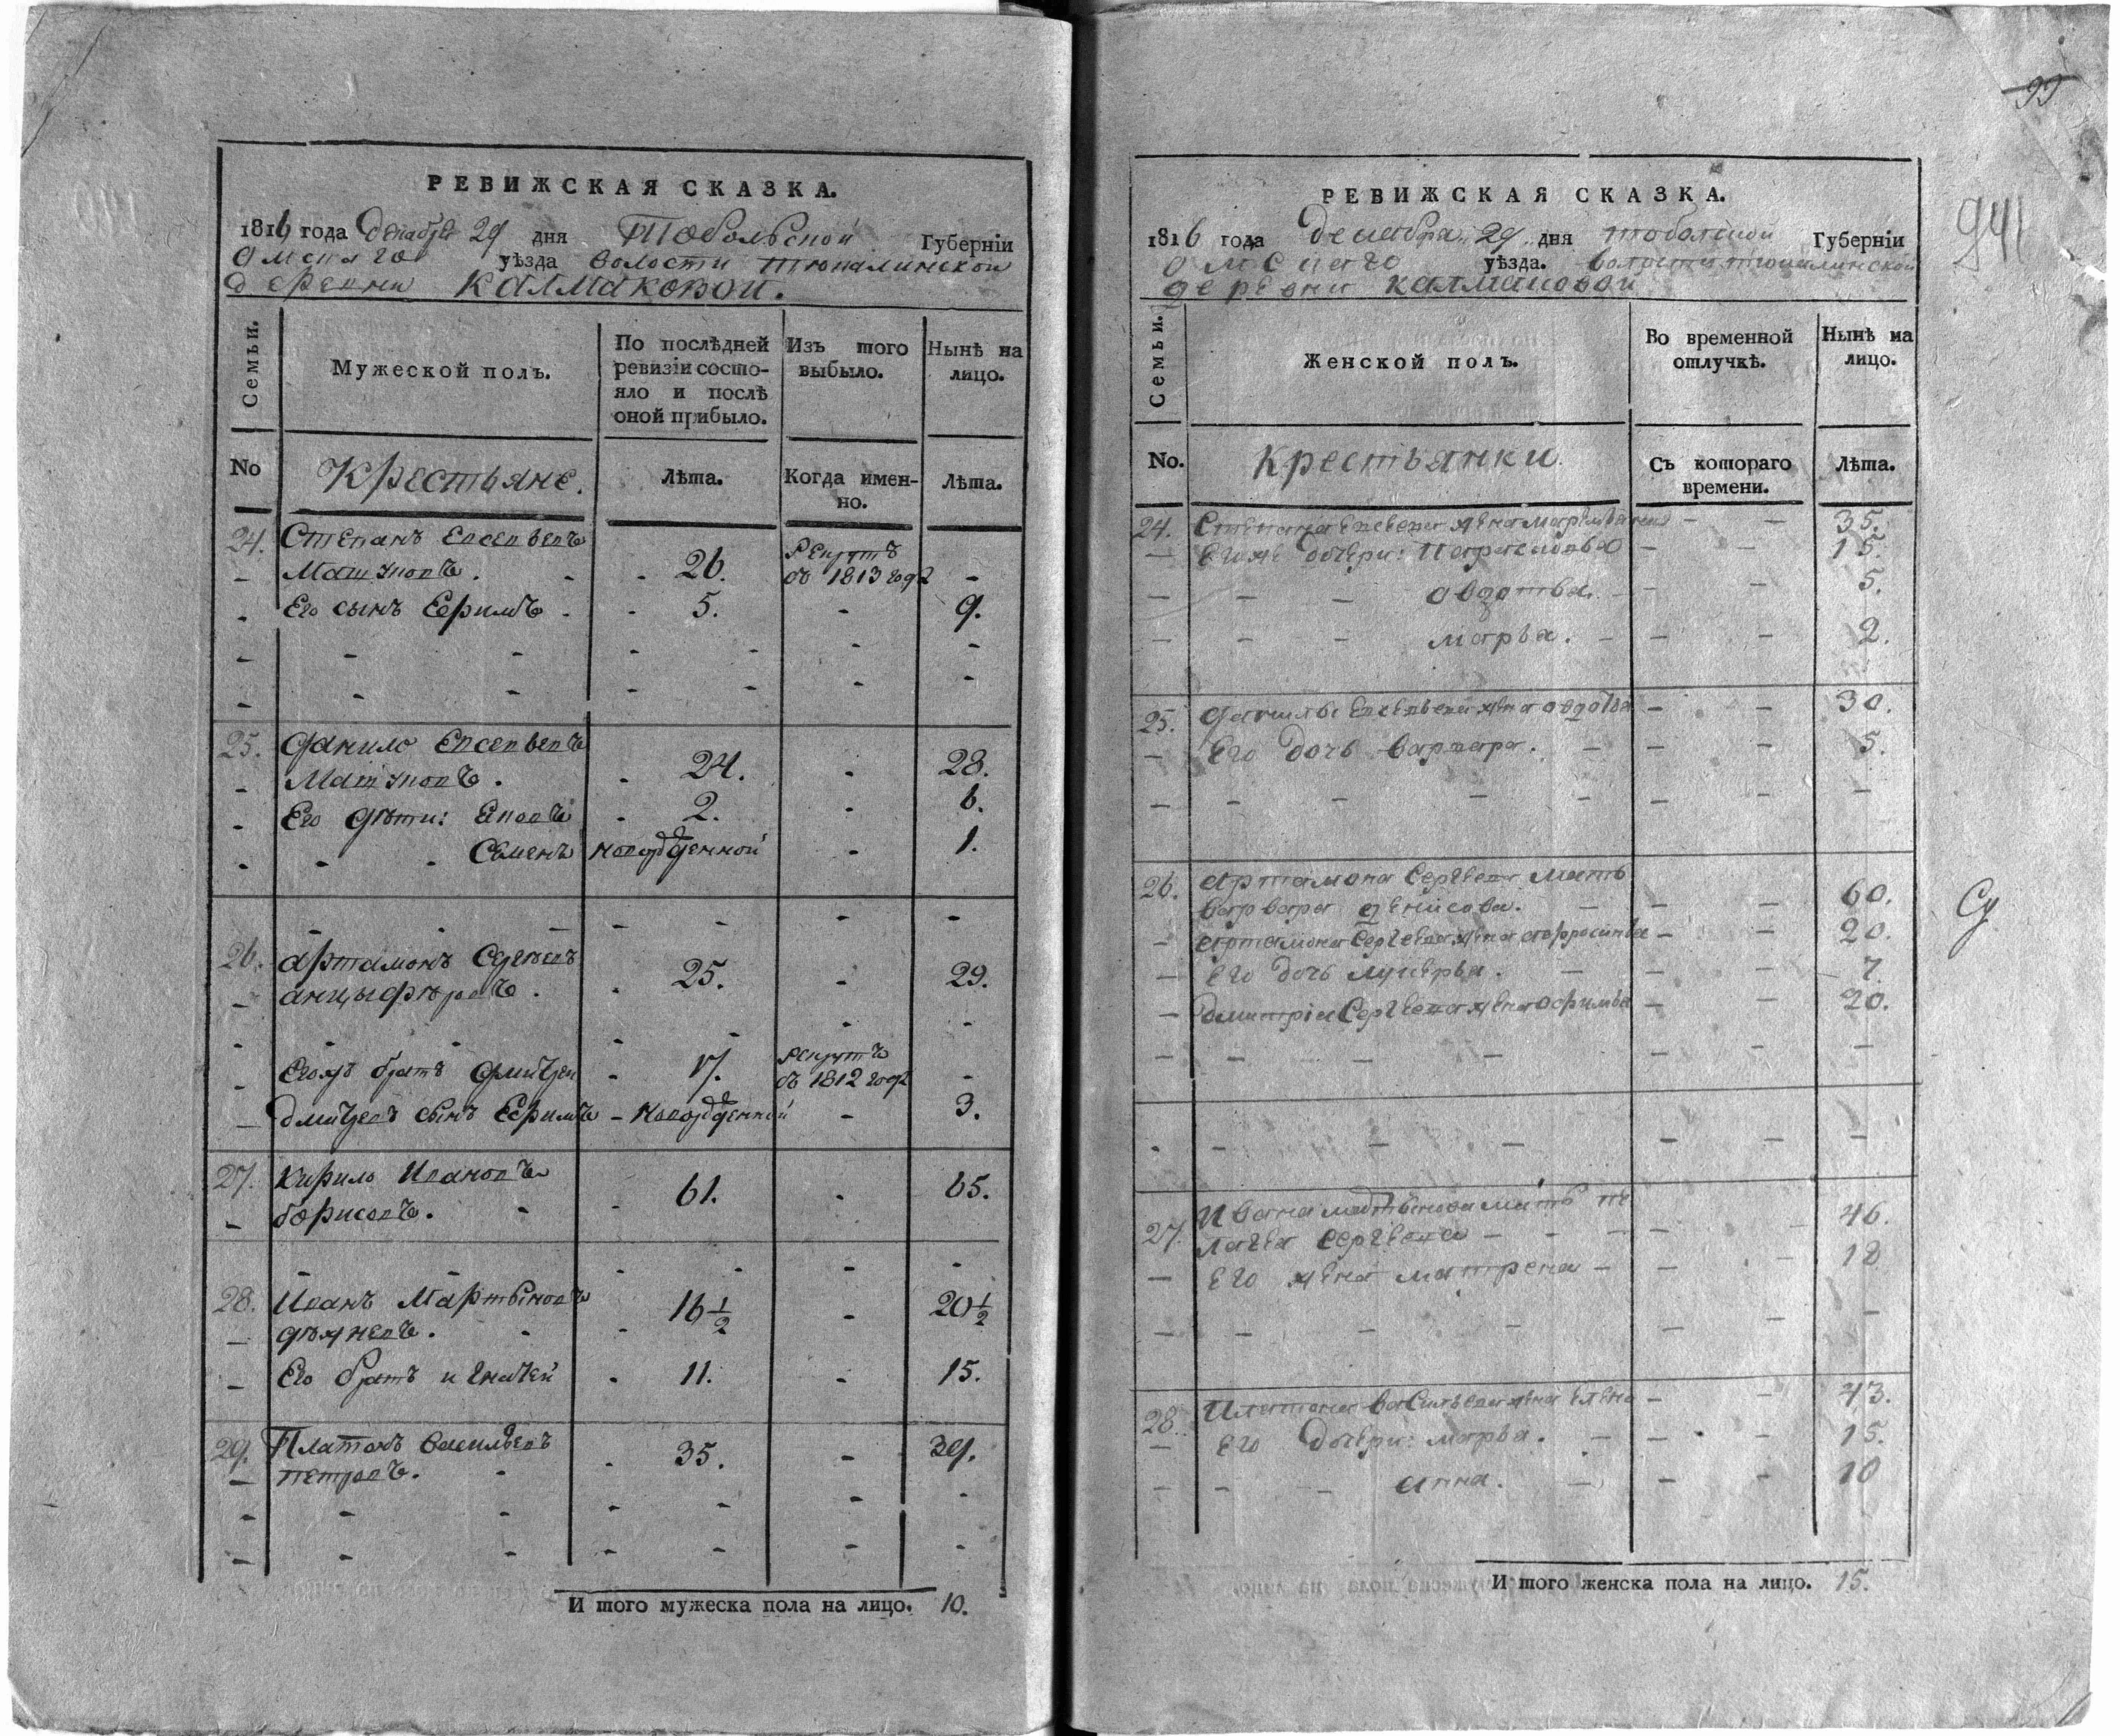 РЕВИЖСКАЯ СКАЗКА.
1816 года Декабря 29 дня Тобольской Губерніи
Омскаго уѣзда волости тюкалинской
деревни Калмаковой.
Семьи.
Мужеской полъ.
По послѣдней ревизіи состояло и послѣ оной прибыло.
Изъ того выбыло.
Нынѣ на лицо.
No Крестьяне. Лѣта. Когда именно. Лѣта.
24. Степанъ Евсевьевъ
26. рекрутъ
въ 1813 годѣ -
Его сынъ Ефимъ - 5. - 9.
25. Данило Евсевьевъ
24. - 28.
Его дѣти: - 2. - 6.
Семенъ новорожденной - 1.
26. артамонъ Сергѣевъ
анцыферовъ. - 25. - 29.
Егожъ братъ Дмитрей - 17. рекрутъ
въ 1812 годѣ -
Дмитрея сынъ Ефимъ - новорожденной - 3.
27. Кирило Ивановъ
борисовъ. - 61. - 65.
28. Иванъ Мартыновъ
16 1/2 - 20 1/2
Его братъ игнатей - 11. - 15.
29. Платонъ васильевъ
петровъ. - 35. - 39.
И того мужеска пола на лицо. 10.
99
941
РЕВИЖСКАЯ СКАЗКА.
1816 года декабря 29 дня тобольской Губерніи
омскаго уѣзда. волости тюкалинской
деревни калмаковой
Семьи.
Женской полъ.
Во временной отлучкѣ.
Нынѣ на лицо.
No. Крестьянки. Съ котораго времени. Лѣта.
24. Степана Евсевева жена - - 35.
Егоже дочери: - - 15.
авдотья. - - 5.
марья. - - 2.
25. данилы Евсевьева жена авдотья - - 30.
Его дочь варвара. - - 5.
26. артамона Сергеева мать
варвара денисова. - - 60.
артамона Сергеева жена афросинья - - 20.
Его дочь лукерья. - - 7.
дмитрія Сергеева жена офимья - - 20.
27. Ивана мартынова мать пе
лагея сергеева - - 46.
Его жена матрена - - 18
28. Платона васильева жена елена - - 43.
Его дочери: марья. - - 15.
анна. - - 10
И того женска пола на лицо. 15.